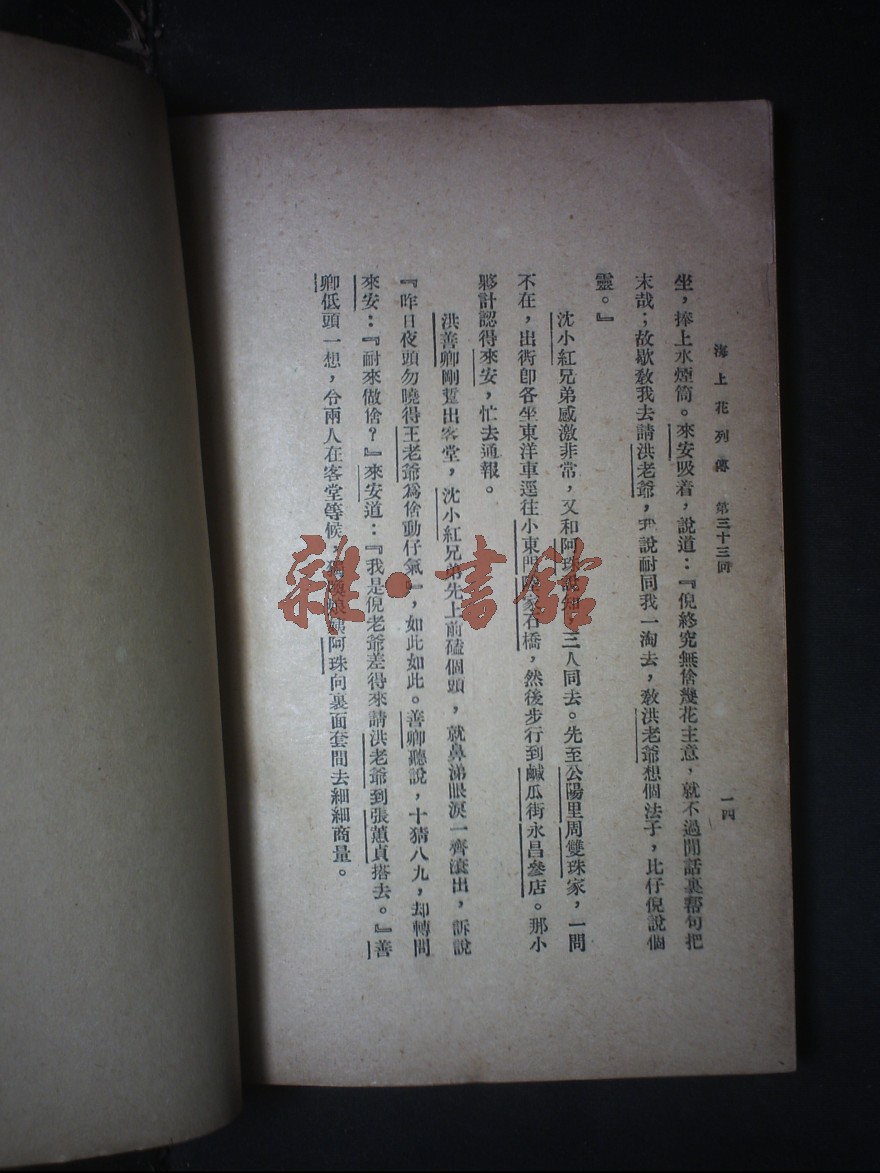 海上花列傳 第三十三回 一四
坐，捧上水煙筒。來安吸着，說道：『倪終究無俗幾花主意，就不過閒話裏帮句把
末哉；故歇敎我去請洪老爺，說耐同我一淘去，敎洪老爺想個法子，比仔倪說個
靈。』
沈小紅兄弟感激非常，又和阿珠說知，三人同去。先至公陽里周雙珠家，一問
不在，出衖卽各坐東洋車逕往小東門陸家石橋，然後步行到鹹瓜街永昌參店。那小
夥計認得來安，忙去通報。
洪善卿剛踅出客堂，沈小紅兄弟先上前磕個頭，就鼻涕眼淚一齊滾出，訴說
『昨日夜頭勿曉得王老爺爲俗動仔氣』，如此如此。善卿聽說，十猜八九，却轉問
來安：『耐來做俗？』來安道：『我是倪老爺差得來請洪老爺到張蕙貞搭去。』善
卿低頭一想，令兩人在客堂等候，獨喚娘姨阿珠向裏面套間去細細商量。
雜·書館